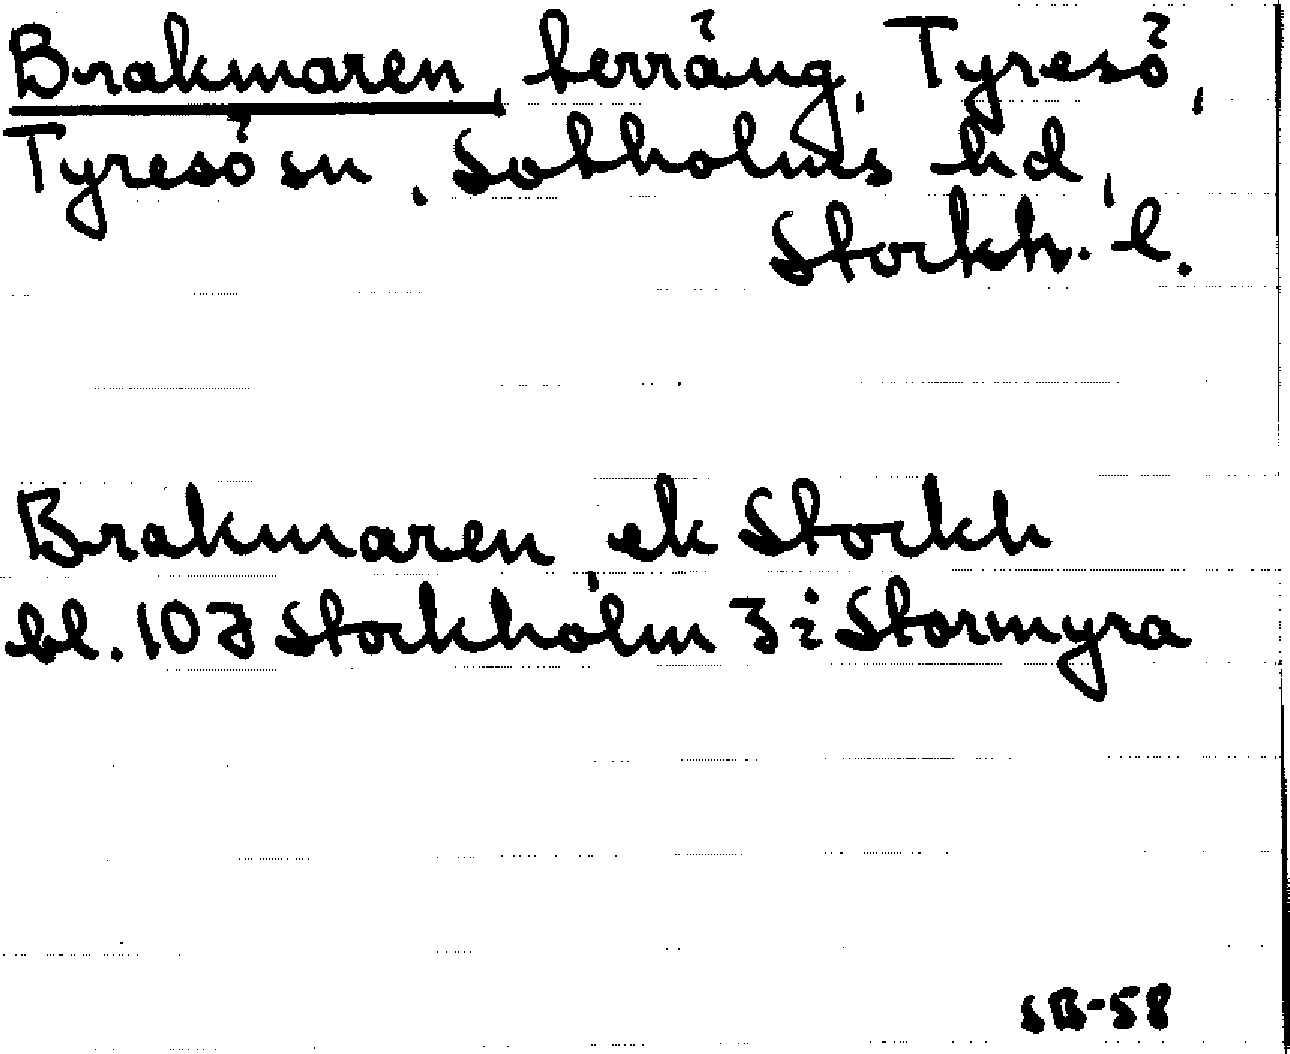 Brakmaren, terräng, Tyresö,
Tyresö sn, Sotholms hd,
Stockh. l.
Brakmaren, ek Stockh
bl. 107 Stockholm 3: Stormyra
SB-58